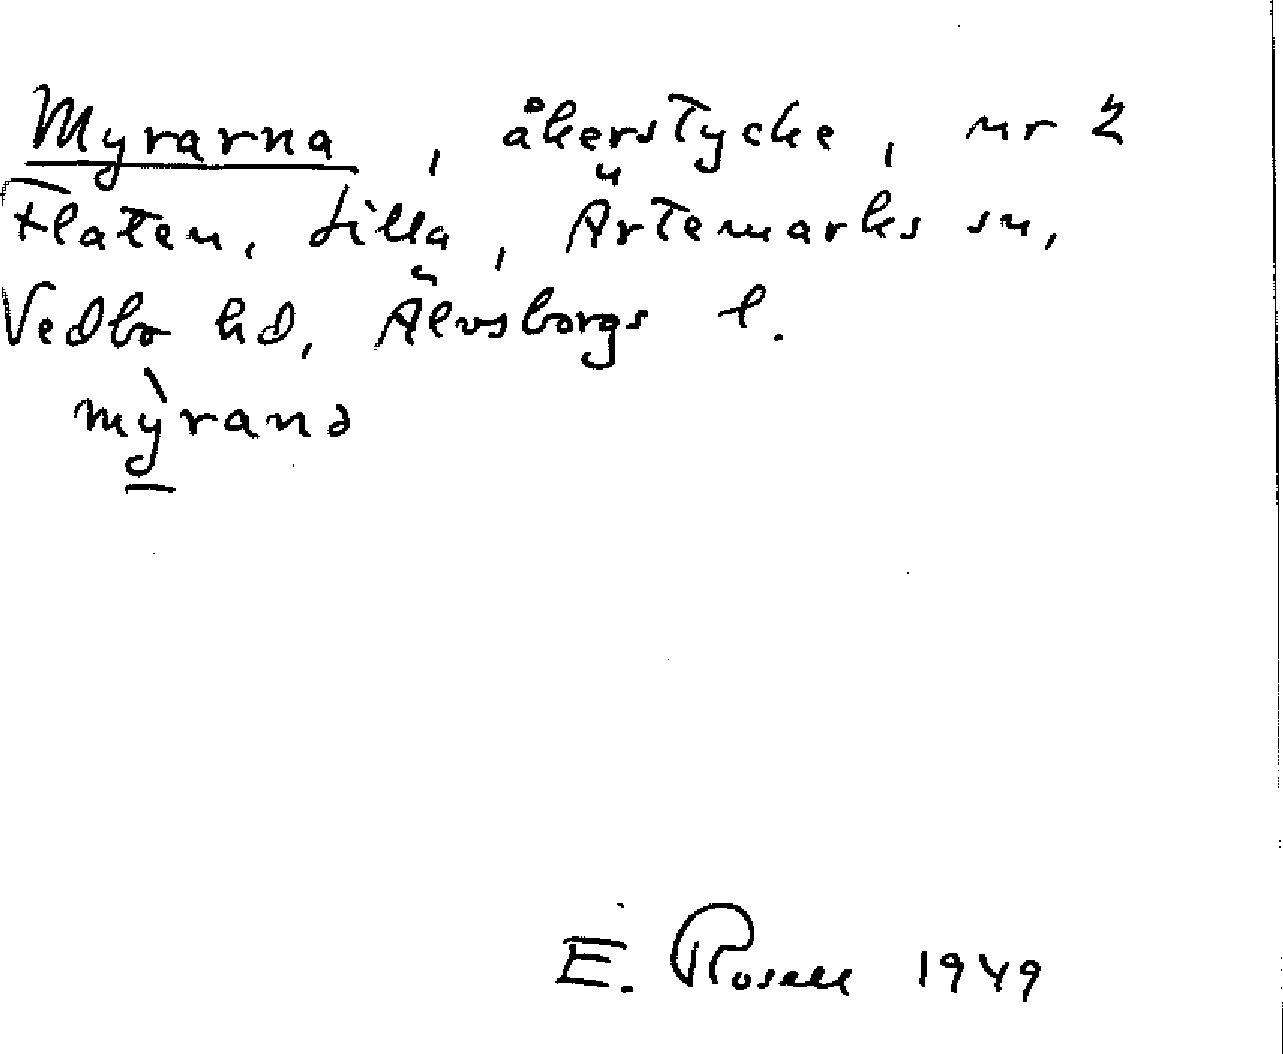 Myrarna, åkerstycke, nr 2
Flaten, Lilla, Ärtemarks sn,
Vedbo hd, Älvsborgs l.
mỳ̱ranə
E. Rosell 1949